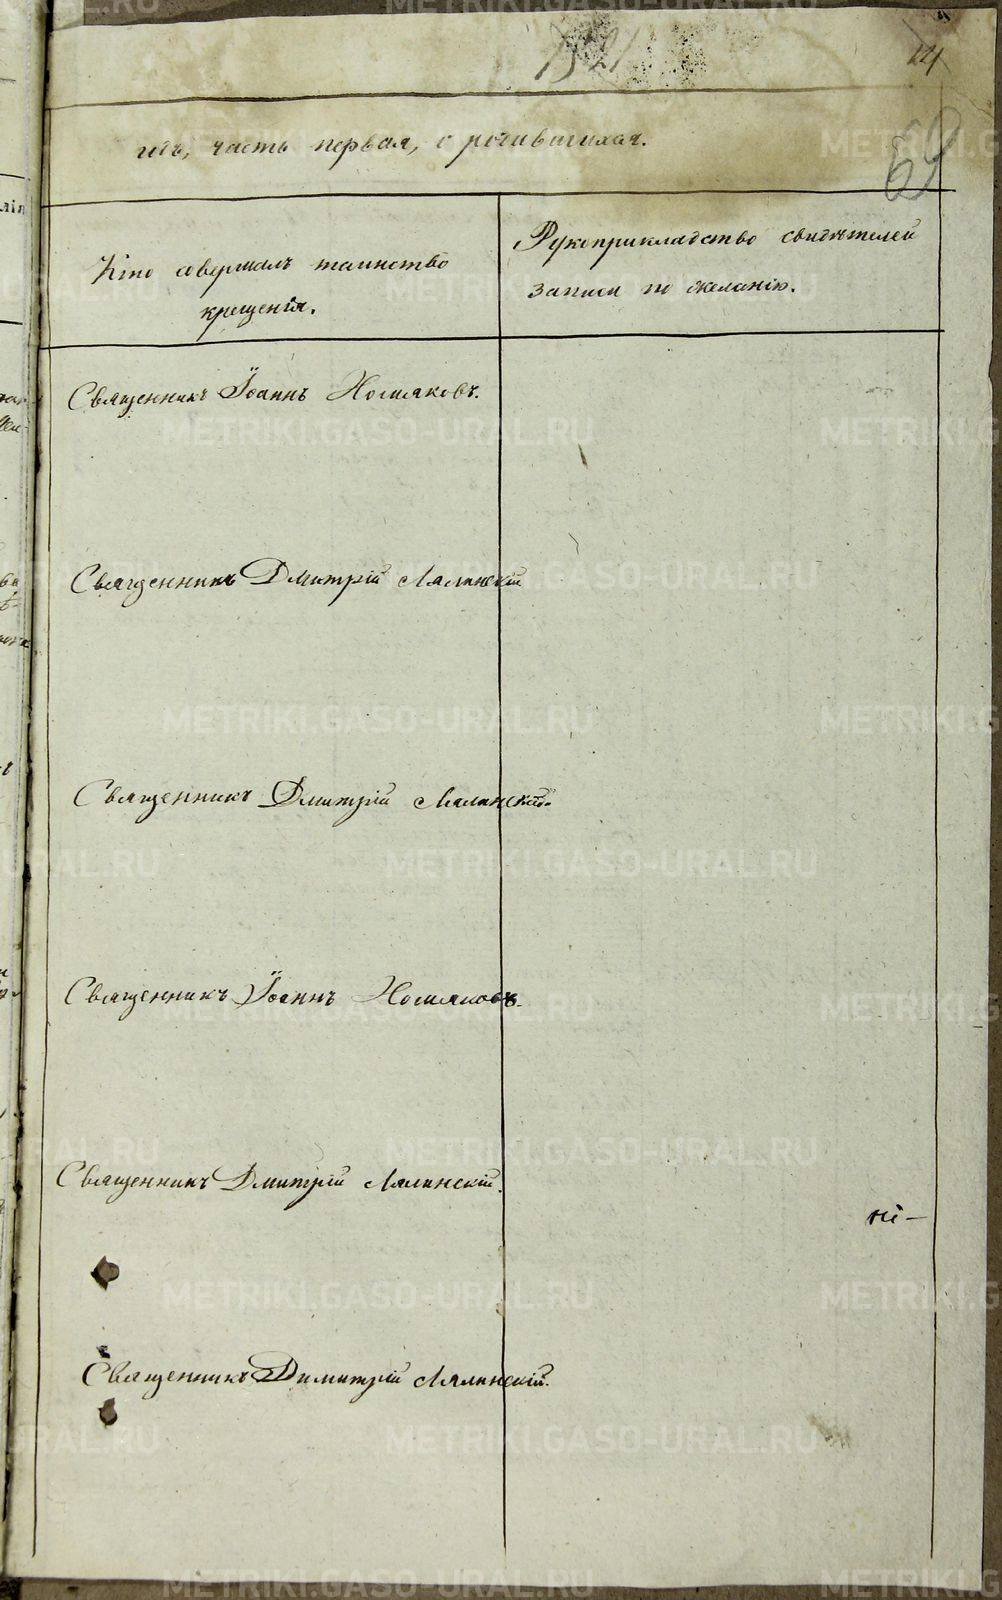 14
69
годъ, часть первая, о родившихся.
Кто совершалъ таинство
крещенія.
Рукоприкладство свидѣтелей
записи по желанію.
Священникъ Іоаннъ Хомяковъ.
Священникъ Дмитрій Лялинскій
Священникъ Дмитрій Лялинскій.
Священникъ Іоаннъ Хомяковъ.
Священникъ Дмитрій Лялинскій.
Священникъ Димитрій Лялинскій.
METRIKI.GASO-URAL.RU